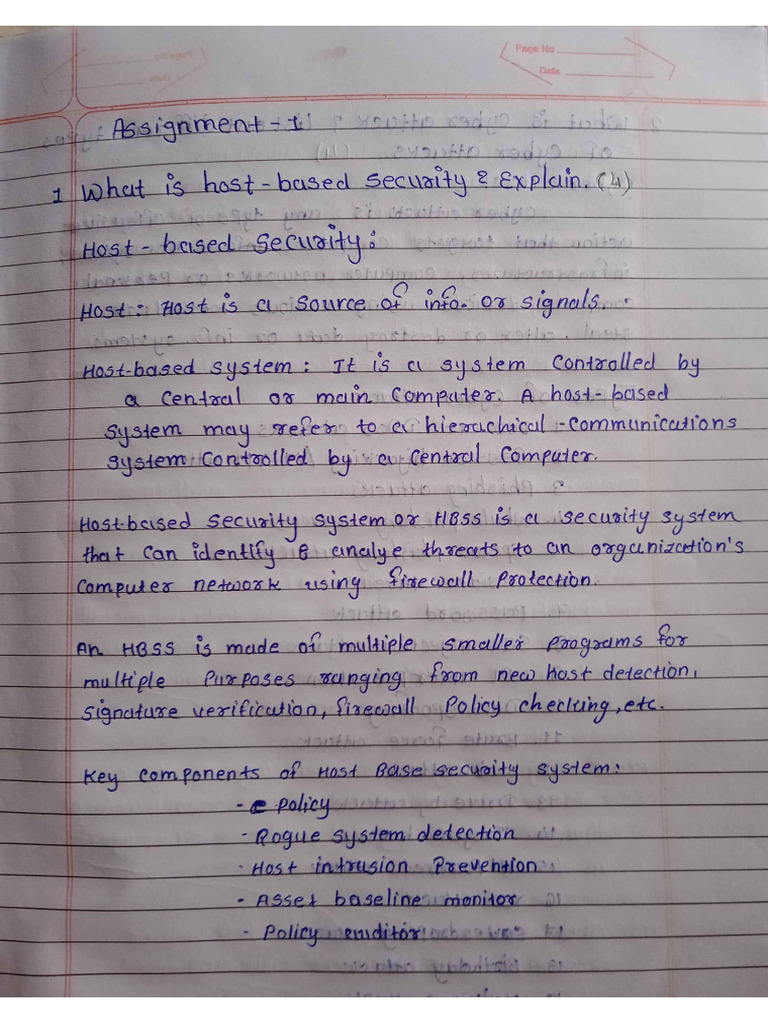 Page No
Date
Assignment - 1
1 What is host-based security & Explain. (4)
Host-based security:
Host: Host is a source of info. or signals.
Host-based system: It is a system controlled by
a central or main computer. A host-based
system may refer to a hierachical-communications
system controlled by a central computer.
Host-based security system or HBSS is a security system
that can identify & analye threats to an organization's
computer network using firewall protection.
An HBSS is made of multiple smaller programs for
multiple purposes ranging from new host detection,
signature verification, firewall policy checking, etc.
Key components of Host Base security system:
- policy
- Rogue system detection
- Host intrusion prevention
- Asset baseline monitor
- Policy auditor